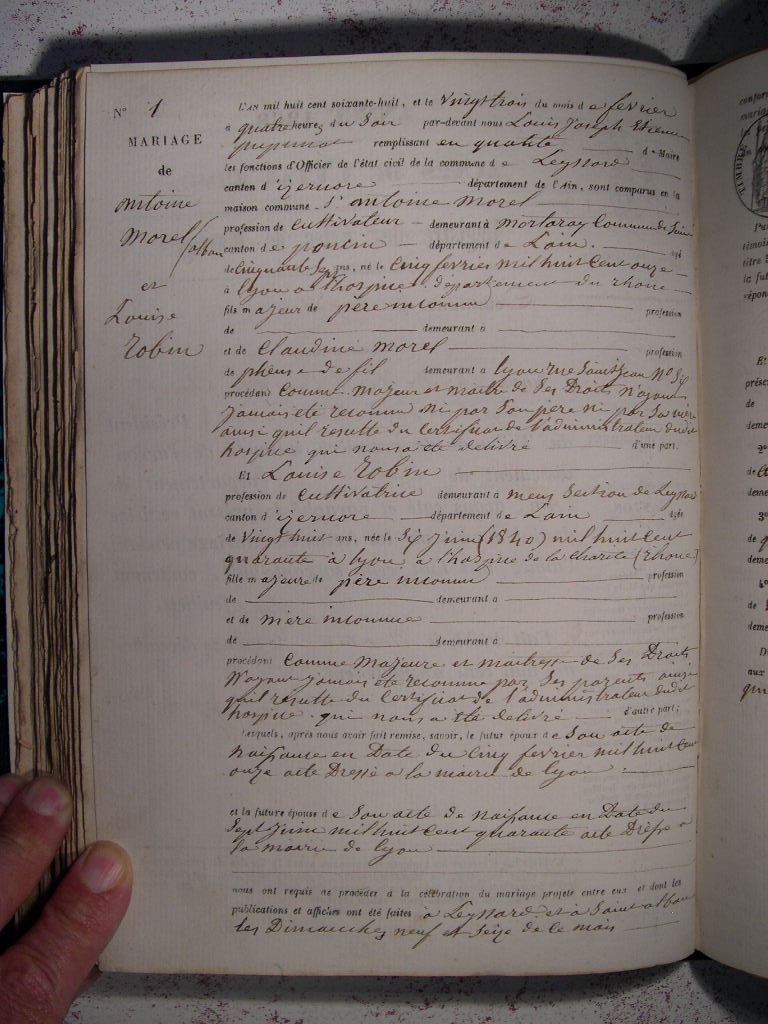 N° 1
MARIAGE
de
antoine
Morel (alban
et
Louise
Robin
L'AN mil huit cent soixante-huit, et le vingt trois du mois de fevrier
à quatre heures du Soir par-devant nous Louis Joseph Etienne
remplissant en qualité de Maire
les fonctions d'Officier de l'état civil de la commune de Leyssard
canton d'izernore département de l'Ain, sont comparus en la
maison commune 1° antoine Morel
profession de Cultivateur demeurant à Mortaray Commune de Saint
alban canton de poncin département de Lain. âgé
de Cinquante Sept ans, né le Cinq fevrier mil huit Cent onze
à lyon a l'hospice, département du rhone
fils majeur de père inconnu profession
de demeurant à
et de Claudine Morel profession
de de fil demeurant à lyon rue Saint Jean N° Six
procédant Comme Majeur et maitre de Ses Droits N'ayant
Jamais été reconnu ni par Son père ni par Sa mère
ainsi quil resulte du Certificat de l'administrateur dudit
hospice qui nous a été delivré d'une part.
Et Louise Robin
profession de Cultivatrice demeurant à Section de Leyssard
canton d'izernore département de Lain âgée
de Vingt huit ans, née le Six Juin (1840) mil huit Cent
quarante à lyon, a l'hospice de la Charité (Rhone)
fille majeure de père inconnu profession
de demeurant à
et de mère inconnue profession
de demeurant à
procédant Comme Majeure et maitresse de Ses Droits
N'ayant Jamais été reconnue par Ses parents ainsi
quil resulte du Certificat de l'administrateur dudit
hospice qui nous a été delivré d'autre part;
Lesquels, après nous avoir fait remise, savoir, le futur époux de Son acte de
Naissance en Date du Cinq fevrier mil huit Cent
onze acte Dressé a la mairie de lyon
et la future épouse de Son acte de Naissance en Date du
Sept Juin mil huit Cent quarante acte Dressé a
la mairie de lyon
nous ont requis de procéder à la célébration du mariage projeté entre eux et dont les
publications et affiches ont été faites à Leyssard et à Saint alban
les Dimanches neuf et Seize de Ce mois